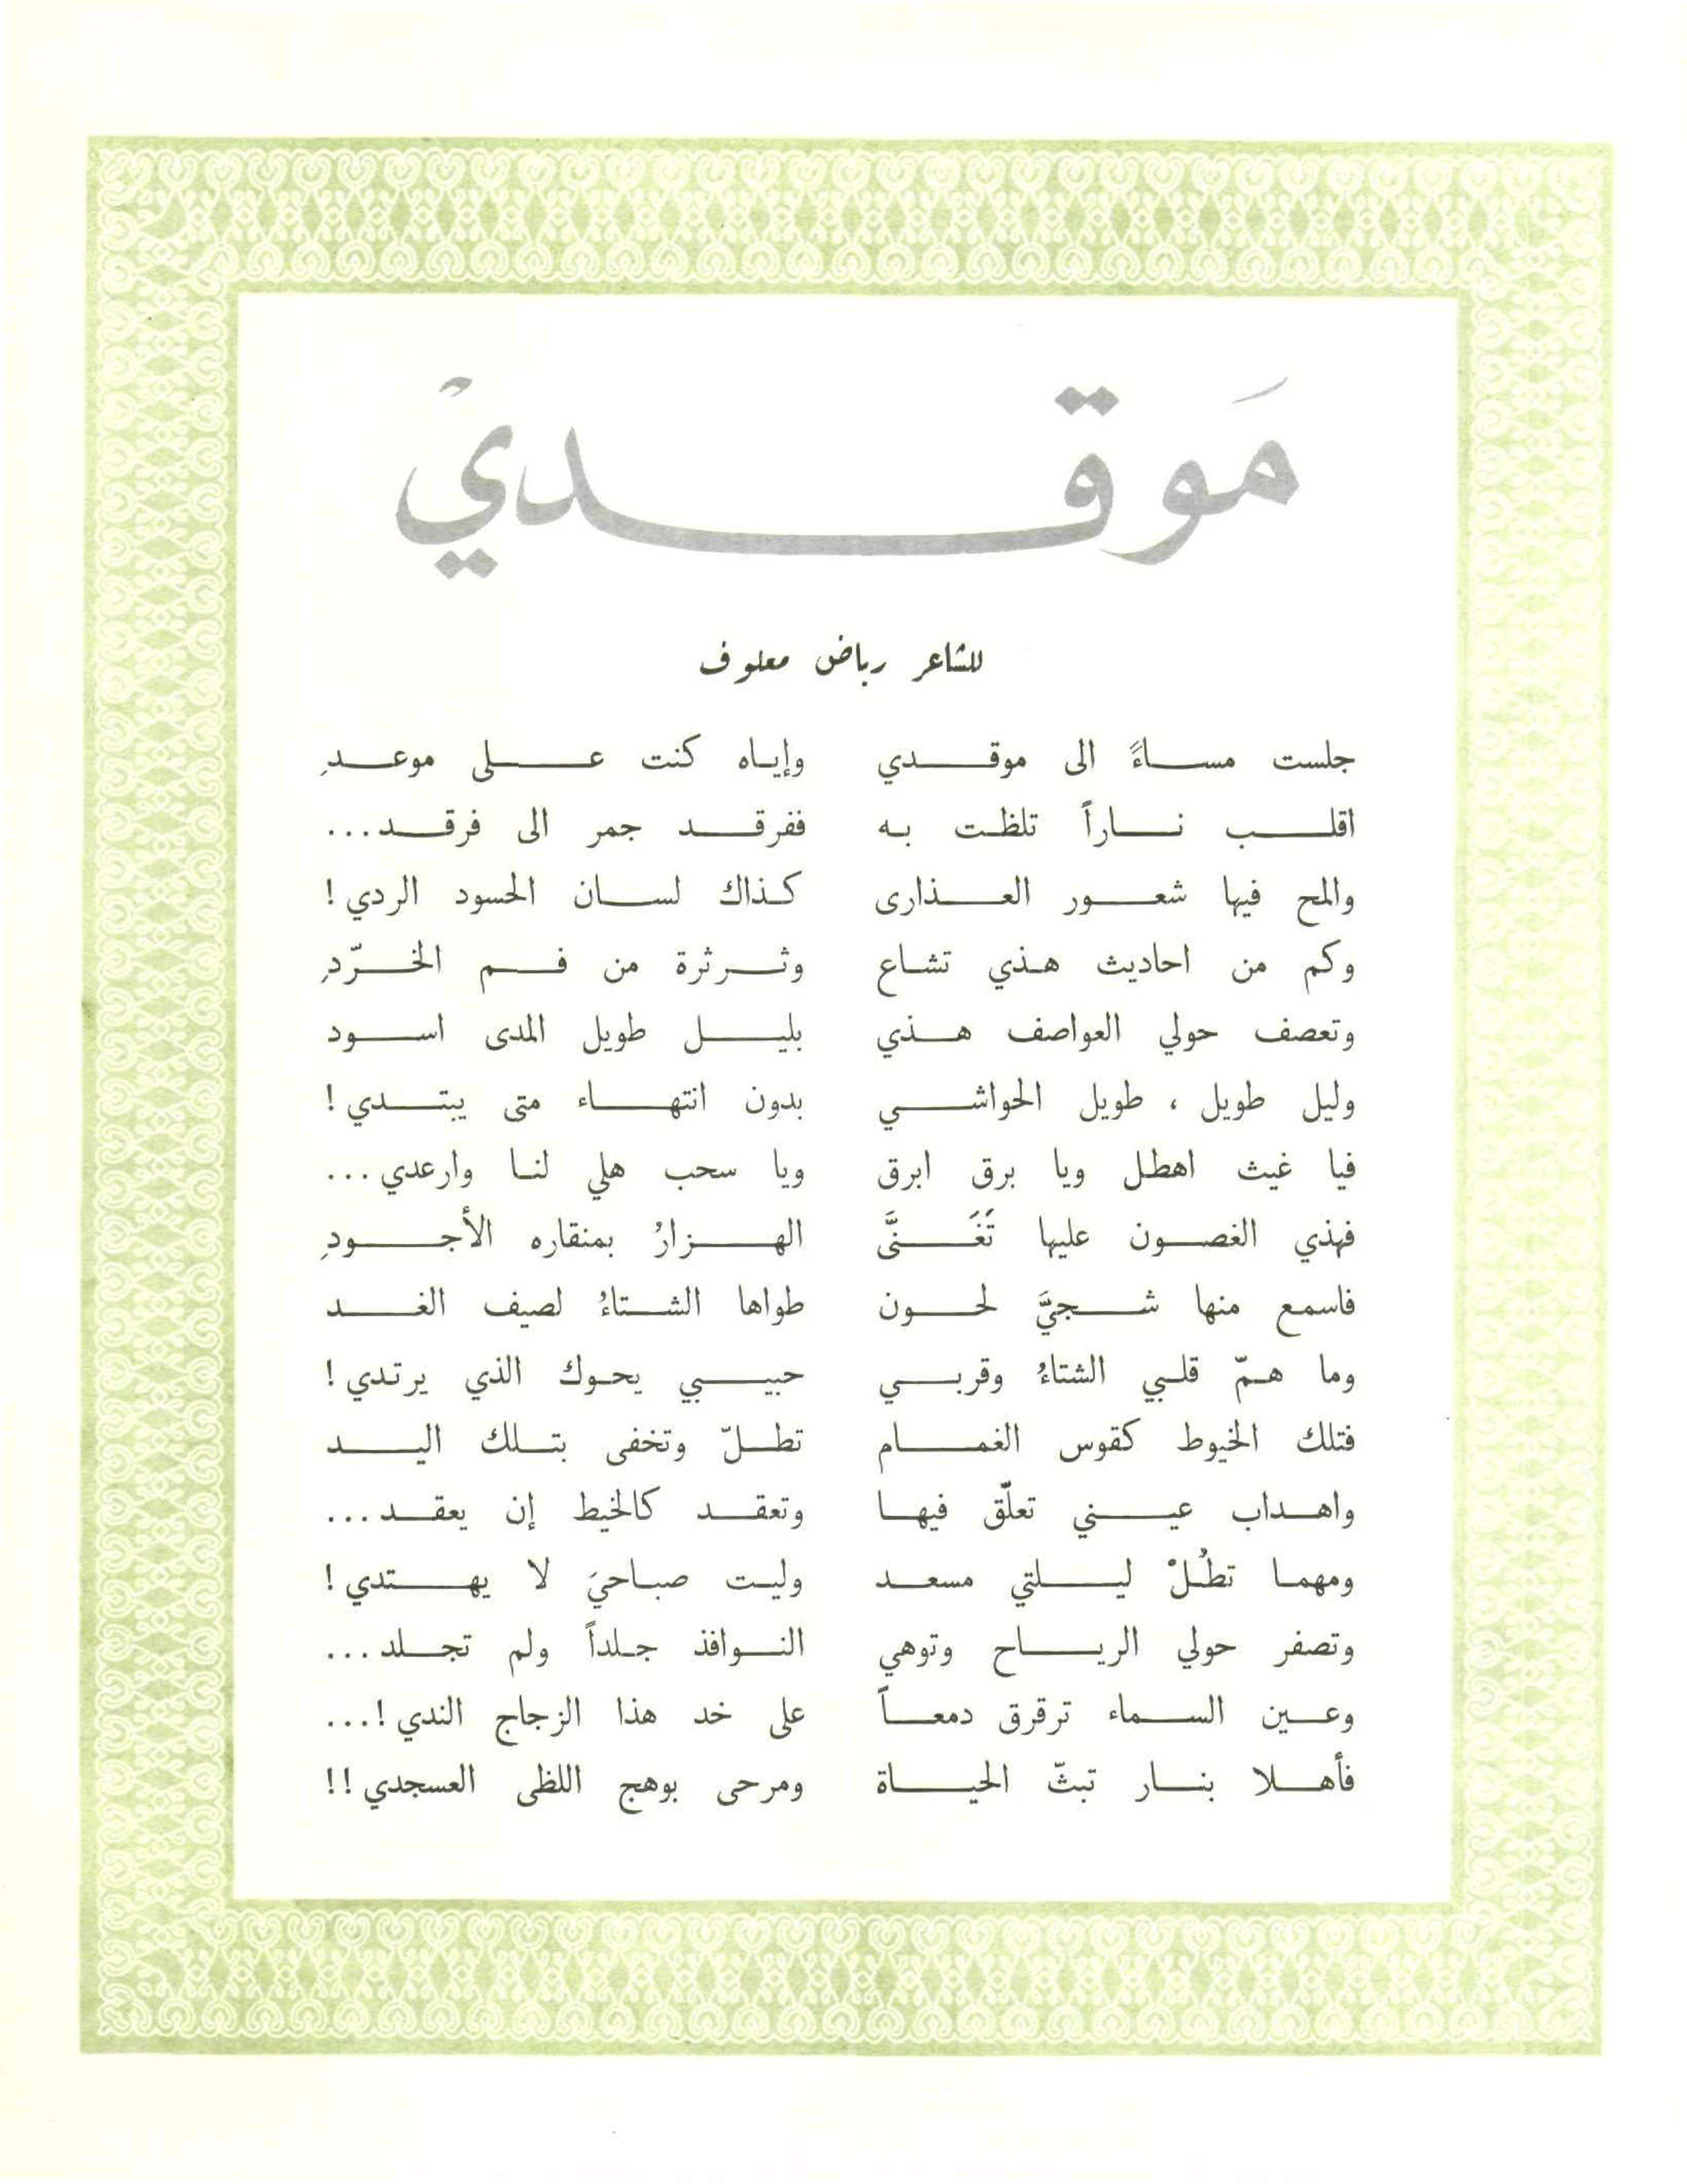 مَوقديْ
للشاعر رياض معلوف
جلست مساءً الى موقدي وإياه كنت على موعدِ
اقلب ناراً تلظت به ففرقد جمر الى فرقد...
والمح فيها شعور العذارى كذاك لسان الحسود الردي!
وكم من احاديث هذي تشاع وثرثرة من فم الخرّدِ
وتعصف حولي العواصف هذي بليل طويل المدى اسود
وليل طويل ، طويل الحواشي بدون انتهاء متى يبتدي!
فيا غيث اهطل ويا برق ابرق ويا سحب هلي لنا وارعدي...
فهذي الغصون عليها تَغَنَّى الهزارُ بمنقاره الأجودِ
فاسمع منها شجيَّ لحون طواها الشتاءُ لصيف الغد
وما همّ قلبي الشتاءُ وقربي حبيبي يحوك الذي يرتدي!
فتلك الخيوط كقوس الغمام تطلّ وتخفى بتلك اليد
واهداب عيني تعلّق فيها وتعقد كالخيط إن يعقد...
ومهما تطُلْ ليلتي مسعد وليت صباحيَ لا يهتدي!
وتصفر حولي الرياح وتوهي النوافذ جلداً ولم تجلد...
وعين السماء ترقرق دمعاً على خد هذا الزجاج الندي!...
فأهلا بنار تبثّ الحياة ومرحى بوهج اللظى العسجدي!!